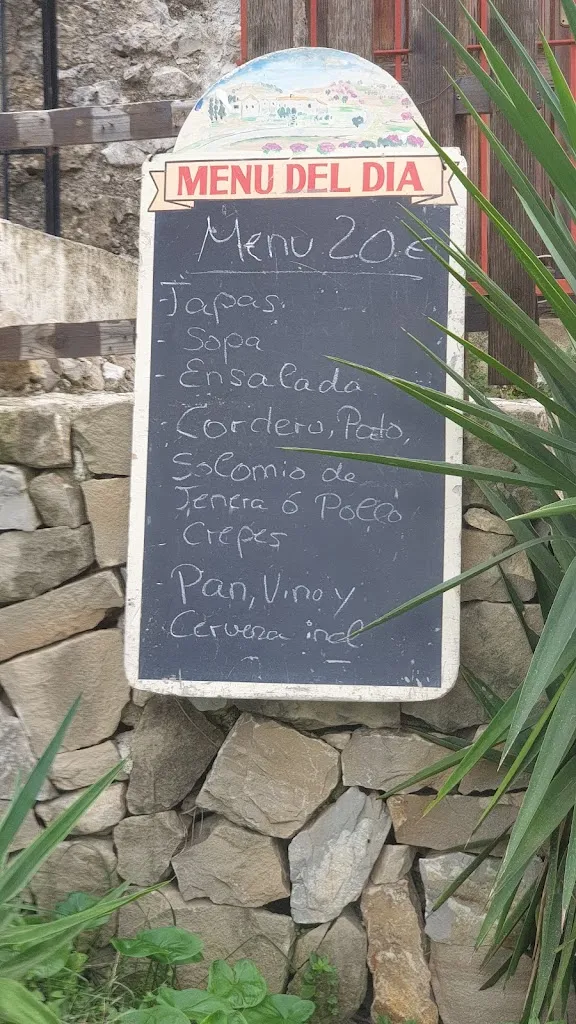 MENU DEL DIA
Menu 20 €
- Tapas
- Sopa
- Ensalada
- Cordero, Pato,
Solomio de
Tenera ó Pollo
- Crepes
Pan, Vino y
Cerveza incl